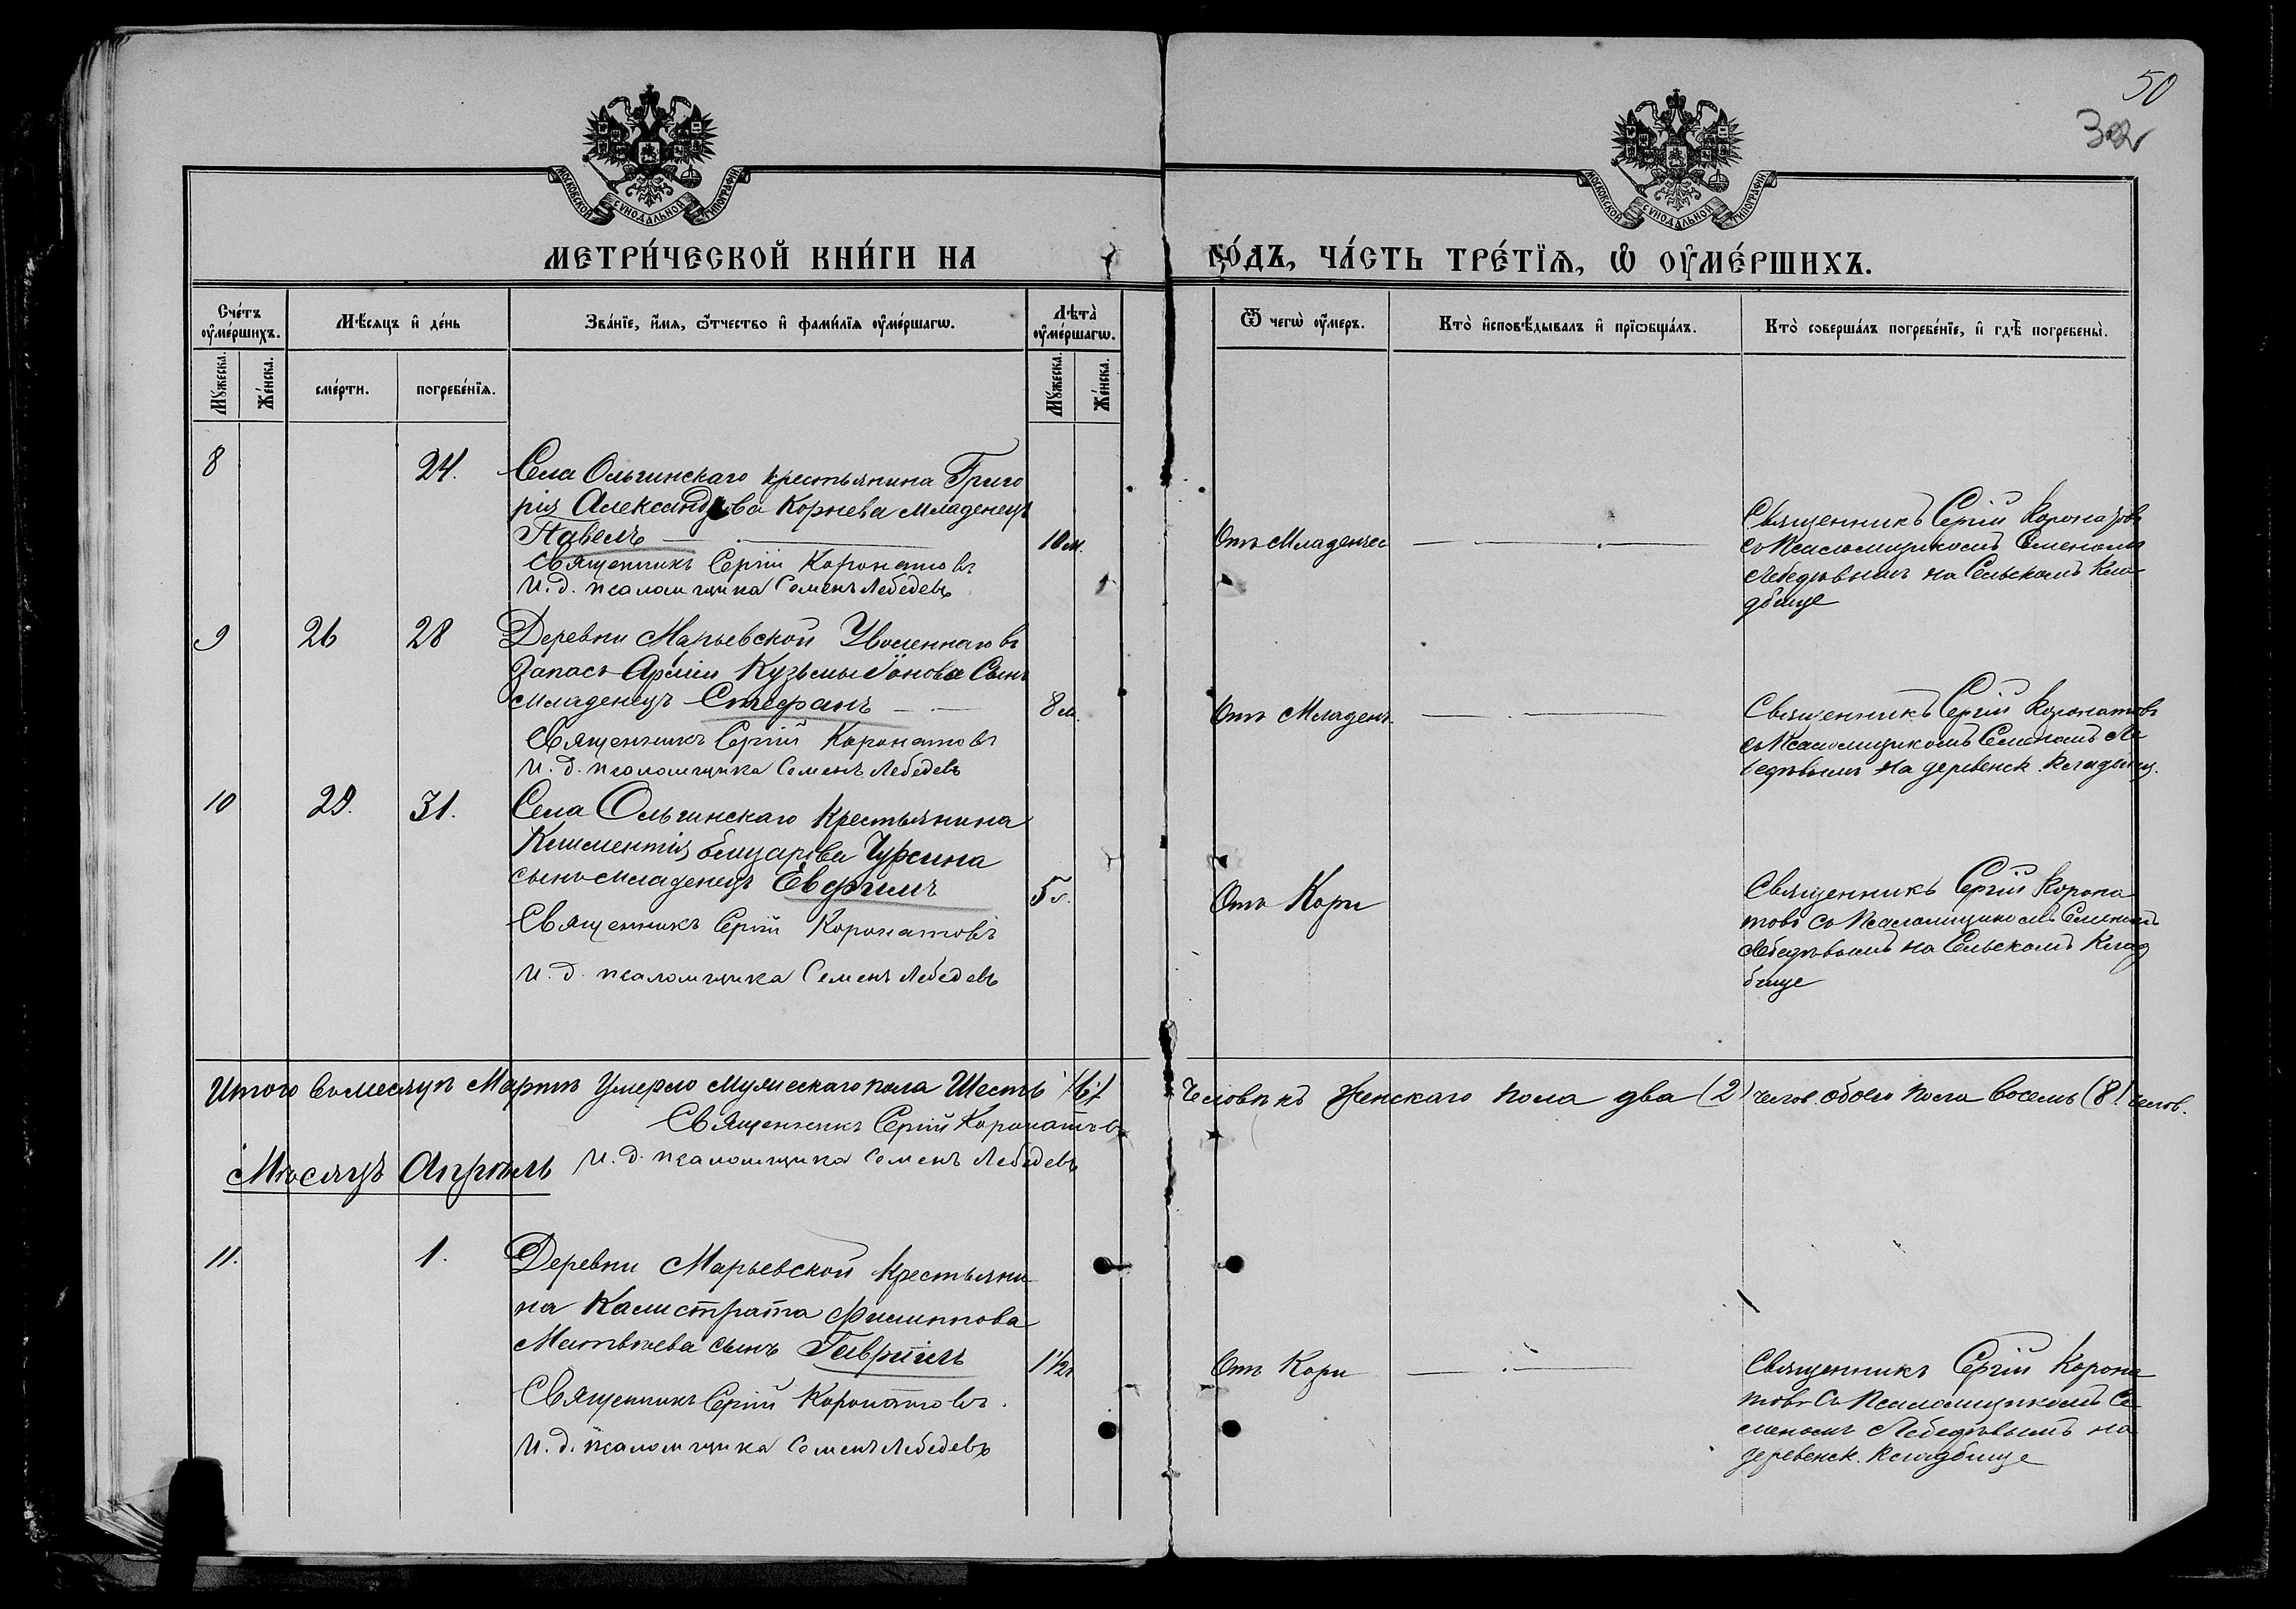 50
МОСКОВСКОЙ СУНОДАЛЬНОЙ ТИПОГРАФІИ
МОСКОВСКОЙ СУНОДАЛЬНОЙ ТИПОГРАФІИ
МЕТРИ́ЧЕСКОЙ КНИ́ГИ НА
ГО́ДЪ, ЧА́СТЬ ТРЕ́ТЇѦ, Ѡ ОУ҆МЕ́РШИХЪ.
Сче́тъ оу҆ме́ршихъ.
Мѣ́сяцъ и҆ де́нь
Зва́нїе, и҆́мя, ѻ҆́тчество и҆ фами́лїя оу҆ме́ршагѡ.
Лѣта̀ оу҆ме́ршагѡ.
Ѿ чегѡ̀ оу҆́меръ.
Кто̀ и҆сповѣ́дывалъ и҆ прїѡбща́лъ.
Кто̀ соверша́лъ погребе́нїе, и҆ гдѣ̀ погребены̀.
Мꙋ́жеска.
Же́нска.
сме́рти.
погребе́нїя.
Мꙋ́жеска.
Же́нска.
8 24. Села Ольгинскаго крестьянина Григо
рія Александрова Корнева младенецъ
Павелъ — 10 м.
Священникъ Сергій Коронатовъ
И. д. псаломщика Семенъ Лебедевъ
Отъ Младенчес
Священникъ Сергій Коронатовъ
съ Псаломщикомъ Семеномъ
Лебедевымъ на Сельскомъ Кла
дбище
9 26 28 Деревни Марьевской Уволеннаго въ
Запасъ Арміи Кузьмы Іонова Сынъ
младенецъ Стефанъ — 8 м.
Священникъ Сергій Коронатовъ
И. д. псаломщика Семенъ Лебедевъ
Отъ Младенч.
Священникъ Сергій Коронатовъ
съ Псаломщикомъ Семеномъ Ле
бедевымъ на деревенск. кладбищ.
10 29. 31. Села Ольгинскаго Крестьянина
Климентія Чурсина
сынъ младенецъ Евфимъ 5 г.
Священникъ Сергій Коронатовъ
И. д. псаломщика Семенъ Лебедевъ
Отъ Кори
Священникъ Сергій Корона
товъ съ Псаломщикомъ Семеномъ
Лебедевымъ на Сельскомъ Клад
бище
Итого въ месяцѣ Мартѣ Умерло мужескаго пола Шесть (6)
Человѣкъ женскаго пола два (2) челов. обоего пола восемь (8) челов.
Священникъ Сергій Коронатовъ
И. д. псаломщика Семенъ Лебедевъ
Мѣсяцъ Апрѣль
11. 1. Деревни Марьевской Крестьяни
на Калистрата Филиппова
Матвѣева сынъ Гавріилъ 1 1/2 г
Священникъ Сергій Коронатовъ.
И. д. псаломщика Семенъ Лебедевъ
Отъ Кори
Священникъ Сергій Корона
товъ съ Псаломщикомъ Се
меномъ Лебедевымъ на
деревенск. кладбище